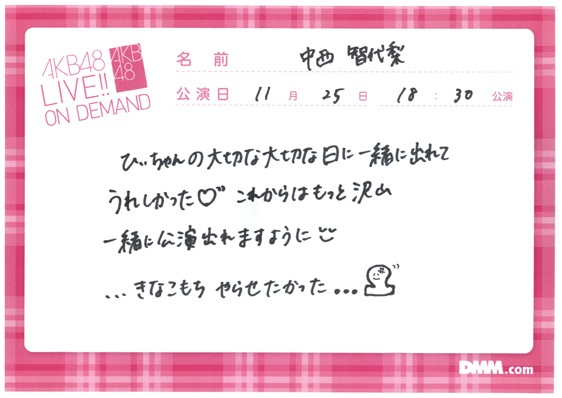 AKB48
LIVE!!
ON DEMAND
AKB
48
名前 中西 智代梨
公演日 11月 25日 18:30 公演
ひぃちゃんの大切な大切な日に一緒に出れて
うれしかった♡ これからはもっと沢山
一緒に公演出れますように
...きなこもち やらせたかった...
DMM.com